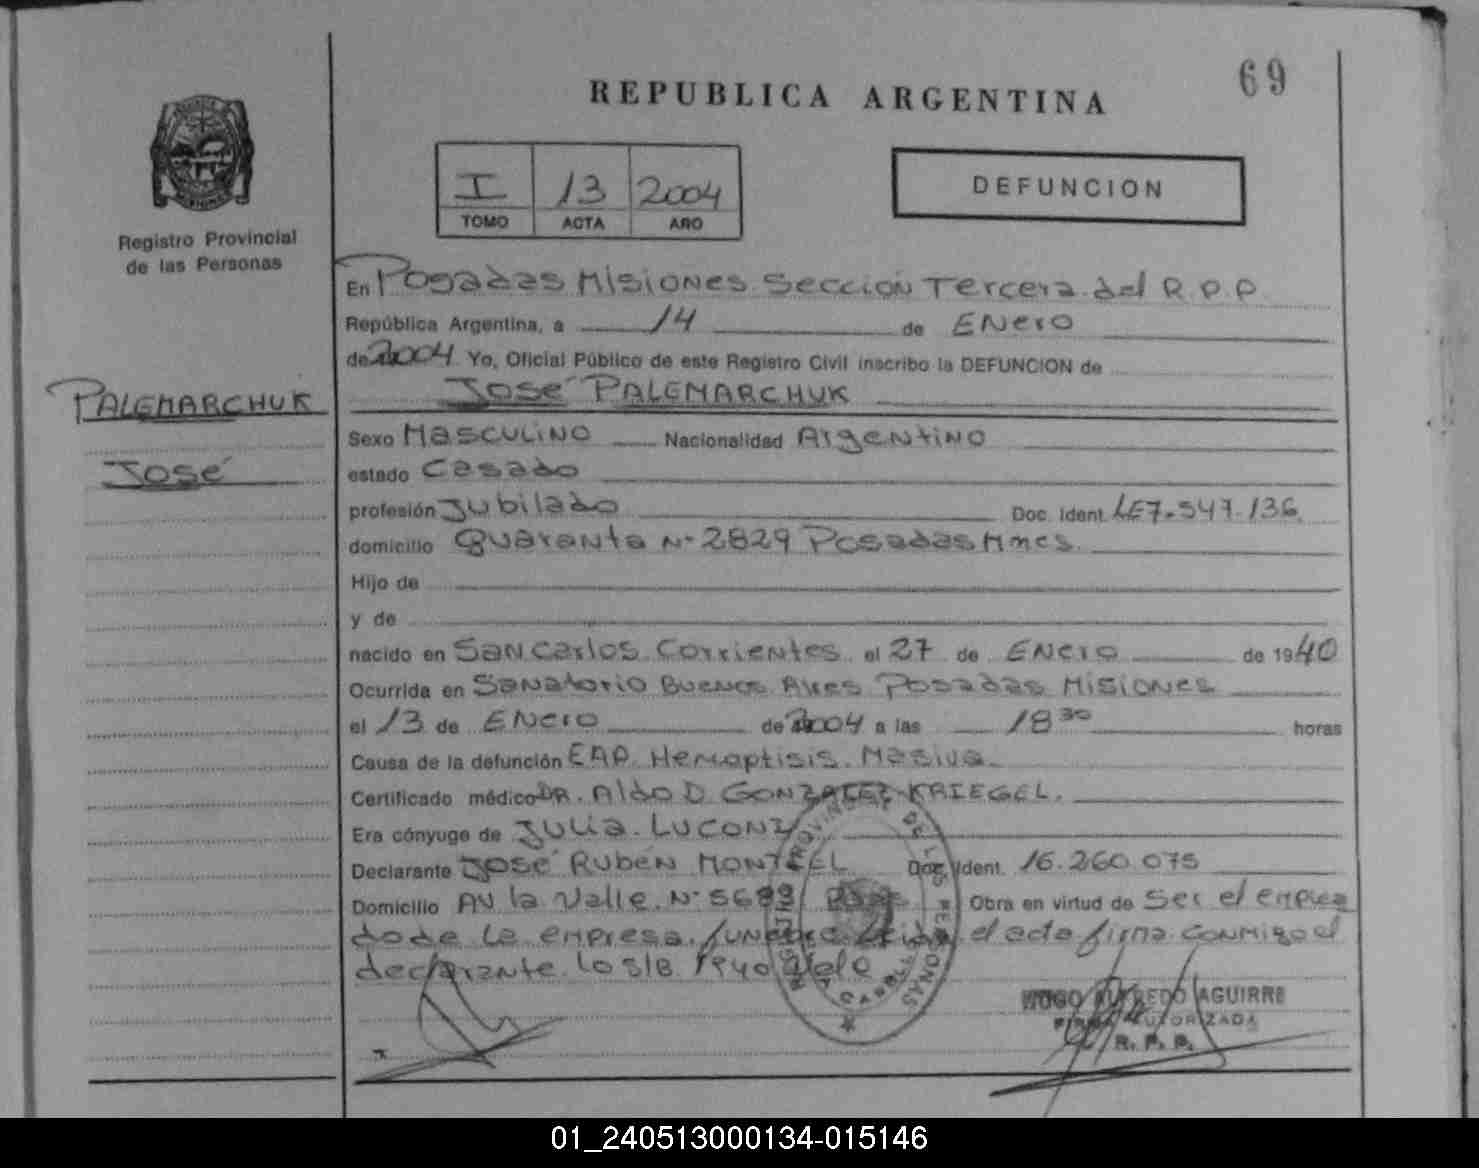 69
REPUBLICA ARGENTINA
I 13 2004
TOMO ACTA AÑO
DEFUNCION
Registro Provincial
de las Personas
En Posadas Misiones Sección Tercera del R.P.P.
República Argentina, a 14 de Enero
de 2004 Yo, Oficial Público de este Registro Civil inscribo la DEFUNCION de
José PALEMARCHUK
PALEMARCHUK
José
Sexo Masculino Nacionalidad Argentino
estado Casado
profesión Jubilado Doc. Ident. LE7.547.136
domicilio Quaranta N° 2829 Posadas Mnes.
Hijo de
y de
nacido en San Carlos Corrientes el 27 de Enero de 1940
Ocurrida en Sanatorio Buenos Aires Posadas Misiones
el 13 de Enero de 2004 a las 18 30 horas
Causa de la defunción EAP. Hemoptisis Masiva.
Certificado médico DR. Aldo D. GONZALEZ KRIEGEL.
Era cónyuge de Julia LUCONI
Declarante José Rubén MONTIEL Doc. Ident. 16.260.075
Domicilio AV la Valle N° Obra en virtud de Ser el emplea
do de la empresa el acta firma conmigo el
declarante
HUGO ALFREDO AGUIRRE
FIRMA AUTORIZADA
R. P. P.
01_240513000134-015146